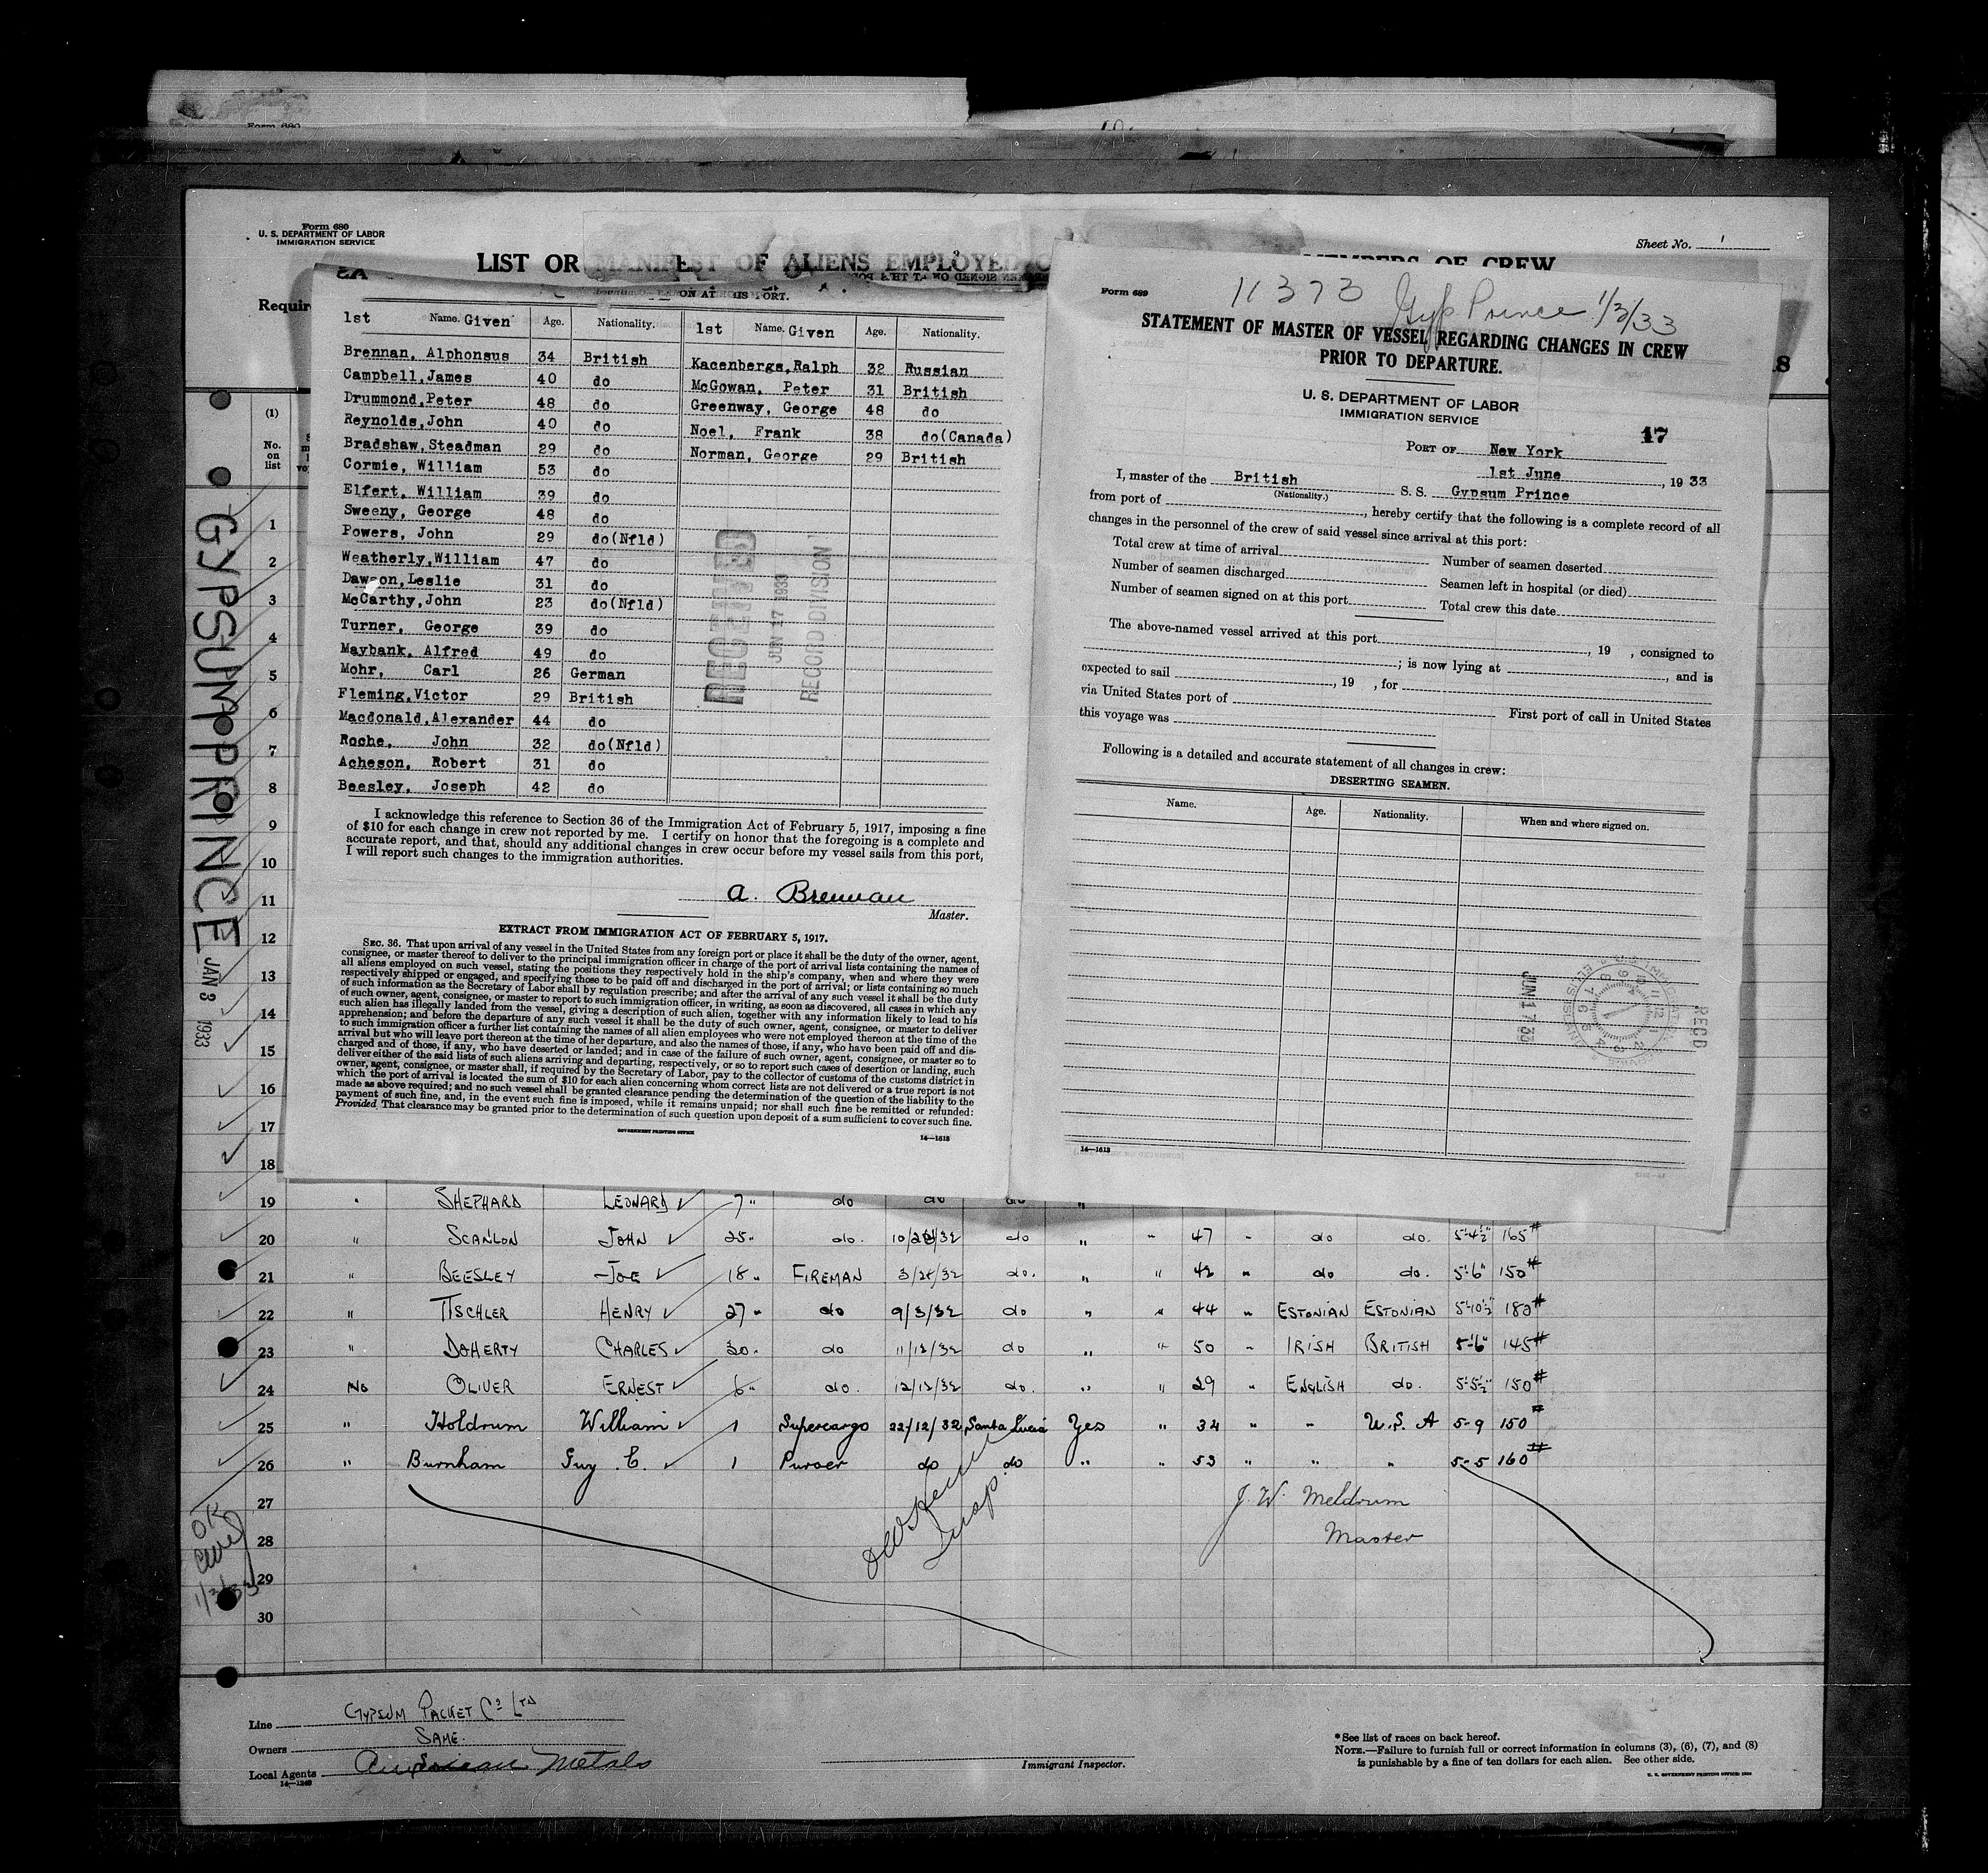 Form 680
U. S. DEPARTMENT OF LABOR
IMMIGRATION SERVICE
Sheet No. 1
LIST OR MANIFEST OF ALIENS EMPLOYED
MEMBERS OF CREW
Require
ON AT THIS PORT.
1st Name. Given Age. Nationality. 1st Name. Given Age. Nationality.
Brennan, Alphonsus 34 British Kacenbergs, Ralph 32 Russian
Campbell, James 40 do McGowan, Peter 31 British
Drummond, Peter 48 do Greenway, George 48 do
Reynolds, John 40 do Noel, Frank 38 do(Canada)
Bradshaw, Steadman 29 do Norman, George 29 British
Cormie, William 53 do
Elfert, William 39 do
Sweeny, George 48 do
Powers, John 29 do(Nfld)
Weatherly, William 47 do
Dawson, Leslie 31 do
McCarthy, John 23 do(Nfld)
Turner, George 39 do
Maybank, Alfred 49 do
Mohr, Carl 26 German
Fleming, Victor 29 British
Macdonald, Alexander 44 do
Roche, John 32 do(Nfld)
Acheson, Robert 31 do
Beesley, Joseph 42 do
RECEIVED
JUN 17 1933
RECORD DIVISION
I acknowledge this reference to Section 36 of the Immigration Act of February 5, 1917, imposing a fine
of $10 for each change in crew not reported by me. I certify on honor that the foregoing is a complete and
accurate report, and that, should any additional changes in crew occur before my vessel sails from this port,
I will report such changes to the immigration authorities.
A. Brennan
Master.
EXTRACT FROM IMMIGRATION ACT OF FEBRUARY 5, 1917.
SEC. 36. That upon arrival of any vessel in the United States from any foreign port or place it shall be the duty of the owner, agent,
consignee, or master thereof to deliver to the principal immigration officer in charge of the port of arrival lists containing the names of
all aliens employed on such vessel, stating the positions they respectively hold in the ship's company, when and where they were
respectively shipped or engaged, and specifying those to be paid off and discharged in the port of arrival; or lists containing so much
of such information as the Secretary of Labor shall by regulation prescribe; and after the arrival of any such vessel it shall be the duty
of such owner, agent, consignee, or master to report to such immigration officer, in writing, as soon as discovered, all cases in which any
such alien has illegally landed from the vessel, giving a description of such alien, together with any information likely to lead to his
apprehension; and before the departure of any such vessel it shall be the duty of such owner, agent, consignee, or master to deliver
to such immigration officer a further list containing the names of all alien employees who were not employed thereon at the time of the
arrival but who will leave port thereon at the time of her departure, and also the names of those, if any, who have been paid off and dis-
charged and of those, if any, who have deserted or landed; and in case of the failure of such owner, agent, consignee, or master so to
deliver either of the said lists of such aliens arriving and departing, respectively, or so to report such cases of desertion or landing, such
owner, agent, consignee, or master shall, if required by the Secretary of Labor, pay to the collector of customs of the customs district in
which the port of arrival is located the sum of $10 for each alien concerning whom correct lists are not delivered or a true report is not
made as above required; and no such vessel shall be granted clearance pending the determination of the question of the liability to the
payment of such fine, and, in the event such fine is imposed, while it remains unpaid; nor shall such fine be remitted or refunded:
Provided, That clearance may be granted prior to the determination of such question upon deposit of a sum sufficient to cover such fine.
GOVERNMENT PRINTING OFFICE 14—1613
Form 689
11373 Gyp Prince 1/3/33
STATEMENT OF MASTER OF VESSEL REGARDING CHANGES IN CREW
PRIOR TO DEPARTURE.
U. S. DEPARTMENT OF LABOR
IMMIGRATION SERVICE
17
PORT OF New York
1st June, 1933
I, master of the British S. S. Gypsum Prince
(Nationality.)
from port of , hereby certify that the following is a complete record of all
changes in the personnel of the crew of said vessel since arrival at this port:
Total crew at time of arrival Number of seamen deserted
Number of seamen discharged Seamen left in hospital (or died)
Number of seamen signed on at this port Total crew this date
The above-named vessel arrived at this port , 19 , consigned to
; is now lying at , and is
expected to sail , 19 , for
via United States port of First port of call in United States
this voyage was
Following is a detailed and accurate statement of all changes in crew:
DESERTING SEAMEN.
Name. Age. Nationality. When and where signed on.
REC'D
JUN 17 33
14—1613
GYPSUM PRINCE
JAN 3 1933
(1)
No. on list
1
2
3
4
5
6
7
8
9
10
11
12
13
14
15
16
17
18
19 " SHEPHARD LEONARD 7" do do do "
20 " SCANLON JOHN 25" do. do " " 47 " do do. 5'-4½" 165#
21 " BEESLEY JOE 18" FIREMAN 3/28/32 do. " " 42 " do do. 5'-6" 150#
22 " TISCHLER HENRY 27" do 9/3/32 do " " 44 " ESTONIAN ESTONIAN 5'10½" 180#
23 " DOHERTY CHARLES 30" do 11/12/32 do " " 50 " IRISH BRITISH 5'-6" 145#
24 No OLIVER ERNEST 6" do. 12/12/32 do. " " 29 " ENGLISH do. 5'-5½" 150#
25 " Holdrum William 1 Supercargo 22/12/32 Santa Lucia Yes " 34 " " U.S.A 5-9 150#
26 " Burnham Guy E. 1 Purser do do " " 53 " " " 5-5 160#
27
28
29
30
Insp.
J. W. Meldrum
Master
OK
1/3/33
Line GYPSUM PACKET Co LTD
Owners SAME.
Local Agents American Metals
14—1240
Immigrant Inspector.
*See list of races on back hereof.
NOTE.—Failure to furnish full or correct information in columns (3), (6), (7), and (8)
is punishable by a fine of ten dollars for each alien. See other side.